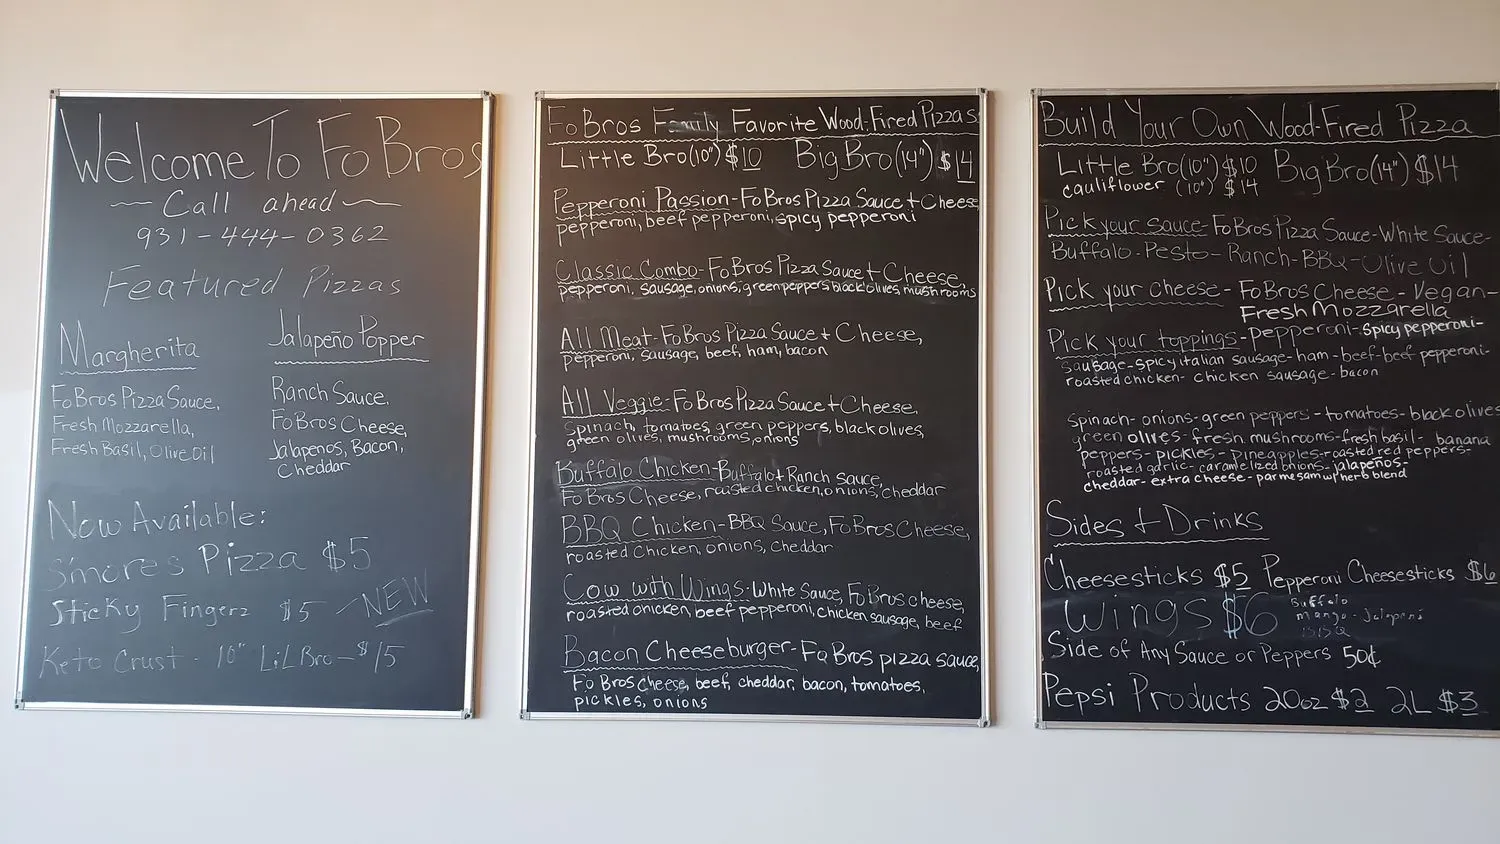 Welcome To FoBros
Call ahead
931-444-0362
Featured Pizzas
Margherita
FoBros Pizza Sauce,
Fresh Mozzarella,
Fresh Basil, Olive Oil
Jalapeño Popper
Ranch Sauce,
FoBros Cheese,
Jalapenos, Bacon,
Cheddar
Now Available:
S'mores Pizza $5
Sticky Fingerz $5 - NEW
Keto Crust - 10" LiL Bro - $15
FoBros Family Favorite Wood-Fired Pizzas:
Little Bro (10") $10 Big Bro (14") $14
Pepperoni Passion - FoBros Pizza Sauce + Cheese,
pepperoni, beef pepperoni, spicy pepperoni
Classic Combo - FoBros Pizza Sauce + Cheese,
pepperoni, sausage, onions, green peppers, black olives, mushrooms
All Meat - FoBros Pizza Sauce + Cheese,
pepperoni, sausage, beef, ham, bacon
All Veggie - FoBros Pizza Sauce + Cheese,
Spinach, tomatoes, green peppers, black olives,
green olives, mushrooms, onions
Buffalo Chicken - Buffalo + Ranch sauce,
FoBros Cheese, roasted chicken, onions, cheddar
BBQ Chicken - BBQ Sauce, FoBros Cheese,
roasted chicken, onions, cheddar
Cow with Wings: White Sauce, FoBros cheese,
roasted chicken, beef pepperoni, chicken sausage, beef
Bacon Cheeseburger - FoBros pizza sauce,
FoBros Cheese, beef, cheddar, bacon, tomatoes,
pickles, onions
Build Your Own Wood-Fired Pizza
Little Bro (10") $10 Big Bro (14") $14
cauliflower (10") $14
Pick your sauce - FoBros Pizza Sauce - White Sauce -
Buffalo - Pesto - Ranch - BBQ - Olive Oil
Pick your cheese - FoBros Cheese - Vegan -
Fresh Mozzarella
Pick your toppings - pepperoni - spicy pepperoni -
sausage - spicy italian sausage - ham - beef - beef pepperoni -
roasted chicken - chicken sausage - bacon
spinach - onions - green peppers - tomatoes - black olives
green olives - fresh mushrooms - fresh basil - banana
peppers - pickles - pineapples - roasted red peppers -
roasted garlic - caramelized onions - jalapeños -
cheddar - extra cheese - parmesan w/ herb blend
Sides + Drinks
Cheesesticks $5 Pepperoni Cheesesticks $6
Wings $6
Buffalo
mango - Jalapeni
BBQ
Side of Any Sauce or Peppers 50¢
Pepsi Products 20oz $2 2L $3